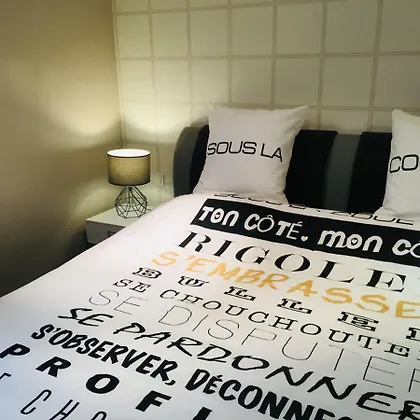 SOUS LA
CO
TON CÔTÉ, MON CÔ
RIGOLE
S'EMBRASSE
BULLE
SE CHOUCHOUTE
SE DISPUTE
SE PARDONNER
S'OBSERVER, DÉCONNE
PROFI